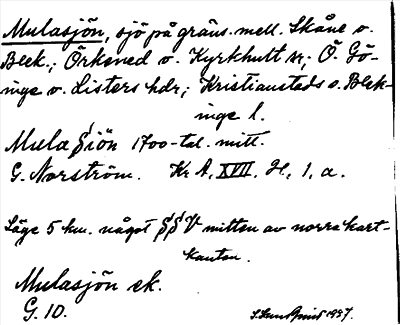 Mulasjön, sjö på gräns. mell. Skåne o.
Blek.; Örkened o. Kyrkhult sr; Ö. Gö-
inge o. Listers hdr; Kristianstads o. Blek-
inge l.
Mula Siön 1700-tal. mitt.
G. Norström. Kr A, XVII. H, 1, a.
Läge 5 km. något SSV mitten av norra kart-
kanten.
Mulasjön ek.
G. 10.
1937.